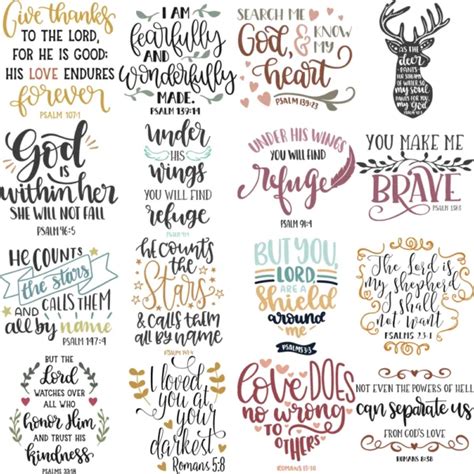 Give thanks
TO THE LORD,
FOR HE IS GOOD;
HIS LOVE ENDURES
forever
PSALM 107:1
I AM
fearfully
AND
wonderfully
MADE.
PSALM 139:14
SEARCH ME
God, & KNOW
my
heart
PSALM 139:23
AS THE
deer
PANTS FOR
STREAMS
OF WATER, SO
my soul
PANTS FOR YOU
my God
God
IS
within her
SHE WILL NOT FALL
PSALM 46:5
under
HIS
wings
YOU WILL FIND
refuge
PSALM 91:4
UNDER HIS WINGS
YOU WILL FIND
refuge
PSALM 91:4
YOU MAKE ME
BRAVE
PSALM 138:3
HE COUNTS
the stars
AND CALLS THEM
all by name
PSALM 147:4
he counts
the
Stars
& calls them
all by name
PSALM 147:4
BUT YOU,
LORD
ARE A
Shield
around
me
PSALM 3:3
The Lord is
my shepherd
I shall
not want
PSALMS 23:1
BUT THE
Lord
WATCHES OVER
ALL WHO
honor Him
AND TRUST HIS
kindness
PSALMS 33:18
I loved
you at
your
darkest
Romans 5:8
love DOES
no wrong
TO
OTHERS
ROMANS 13:10
NOT EVEN THE POWERS OF HELL
can separate us
FROM GOD'S LOVE
ROMANS 8:38